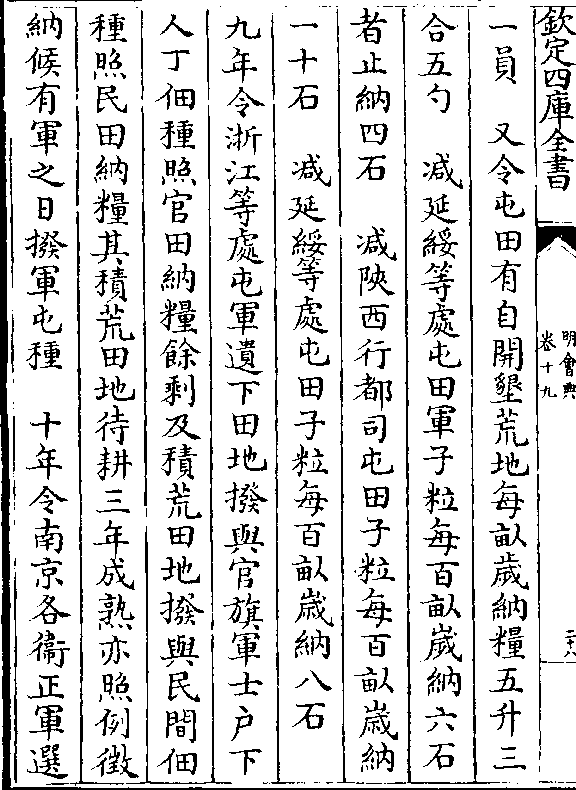 欽定四庫全書
明會典
卷十九
二十八
一員　又令屯田有自開墾荒地每畝歲納糧五升三
合五勺　減延綏等處屯田軍子粒每百畝歲納六石
者止納四石　減陝西行都司屯田子粒每百畝歲納
一十石　減延綏等處屯田子粒每百畝歲納八石
九年令浙江等處屯軍遺下田地撥與官旗軍士户下
人丁佃種照官田納糧餘剩及積荒田地撥與民間佃
種照民田納糧其積荒田地待耕三年成熟亦照例徵
納候有軍之日撥軍屯種　十年令南京各衞正軍選